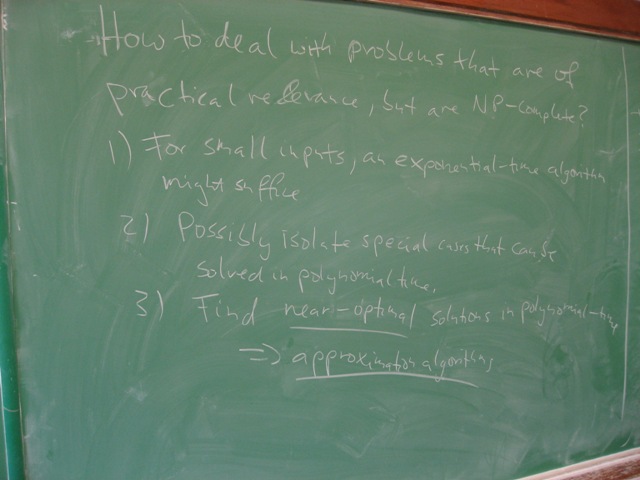 How to deal with problems that are of
practical relevance, but are NP-complete?
1) For small inputs, an exponential-time algorithm
might suffice
2) Possibly isolate special cases that can be
solved in polynomial time.
3) Find near-optimal solutions in polynomial-time
=> approximation algorithms